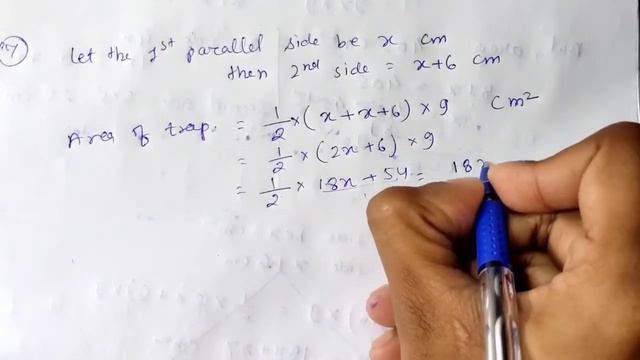 7
Let the 1st parallel side be x cm
then 2nd side = x+6 cm
Area of trap. = 1/2 × (x + x+6) × 9 cm²
= 1/2 × (2x+6) × 9
= 1/2 × 18x + 54 = 18